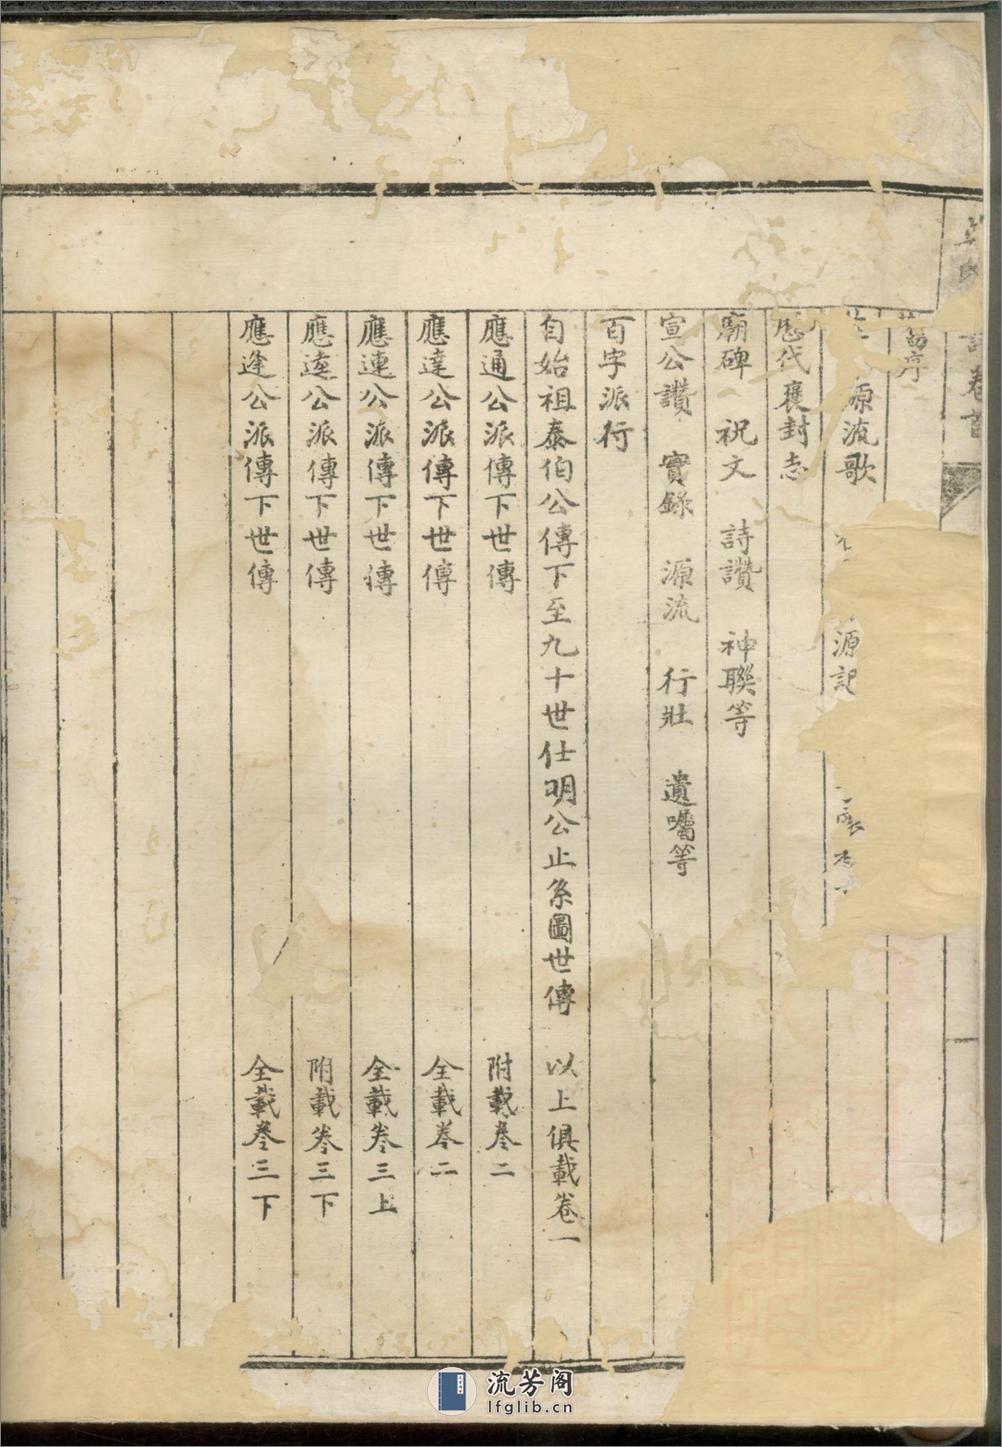 卷首
舊序
源流歌 源記
歷代襃封志
廟碑 祝文 詩讚 神聯等
宣公讚 實錄 源流 行壯 遺囑等
百字派行
自始祖泰伯公傳下至九十世仕明公止系圖世傳 以上俱載卷一
應通公派傳下世傳 附載卷二
應達公派傳下世傳 全載卷二
應連公派傳下世傳 全載卷三上
應逵公派傳下世傳 附載卷三下
應逢公派傳下世傳 全載卷三下
流芳阁
lfglib.cn